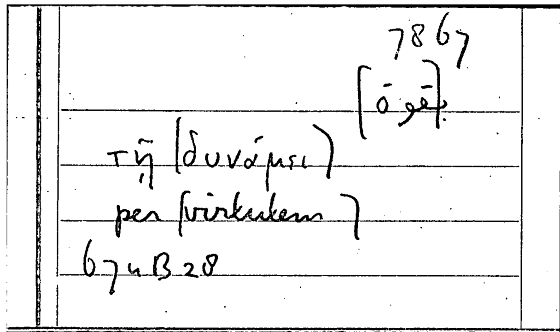 7867
τῇ (δυνάμει)
per (virtutem)
674 B 28